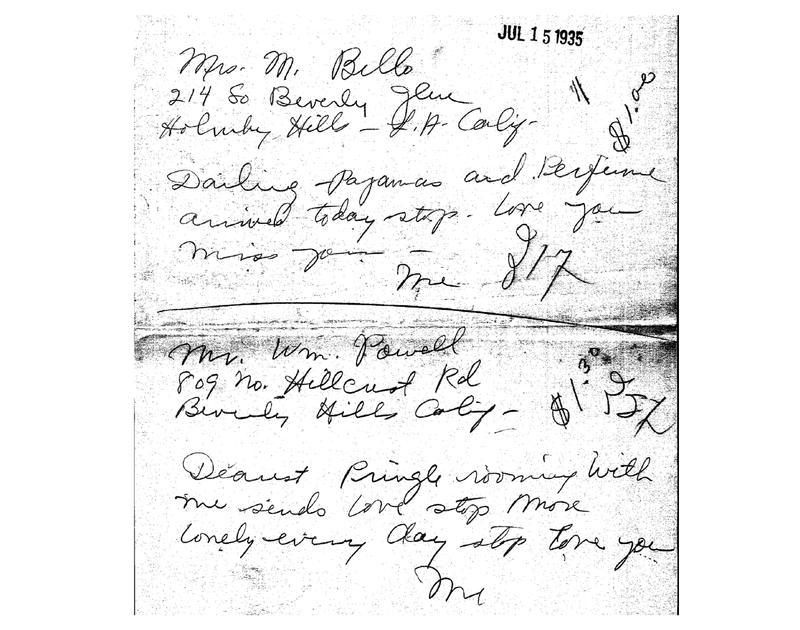 JUL 15 1935
Mrs. M. Bello
214 So Beverly Glen
Holmby Hills - L.A. Calif-
$1.00
Darling - Pajamas and Perfume
arrived today stop. Love you
miss you -
Me
Mr. Wm. Powell
809 No. Hillcrest Rd
Beverly Hills Calif -
$1.30
Dearest Pringle rooming with
me sends love stop More
lonely every day stop Love you
Me